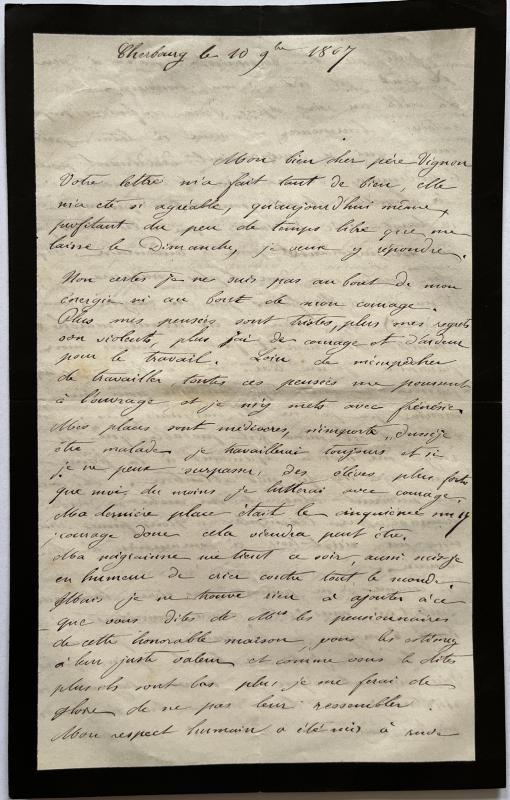 Cherbourg le 10 9bre 1867
Mon bien cher père Vignon
Votre lettre m'a fait tant de bien, elle
m'a été si agréable, qu'aujourd'hui même,
profitant du peu de temps libre que me
laisse le Dimanche, je veux y répondre.
Non certes je ne suis pas au bout de mon
énergie ni au bout de mon courage.
Plus mes pensées sont tristes, plus mes regrets
son violents, plus j'ai de courage et d'ardeur
pour le travail. Loin de m'empêcher
de travailler toutes ces pensées me poussent
à l'ouvrage et je m'y mets avec frénésie.
Mes places sont médiocres, n'importe, dussé-je
être malade je travaillerai toujours et si
je ne peux surpasser des élèves plus forts
que moi, du moins je lutterai avec courage.
Ma dernière place était le cinquième
courage donc cela viendra peut être.
Ma migrainne me tient ce soir, aussi suis-je
en humeur de crier contre tout le monde.
Mais je ne trouve rien à ajouter à ce
que vous dites de Mrs les pensionnaires
de cette honorable maison, vous les estimez
à leur juste valeur et comme vous le dites
plus ils sont bas plus je me ferai de
gloire de ne pas leur ressembler.
Mon respect humain a été mis à rude